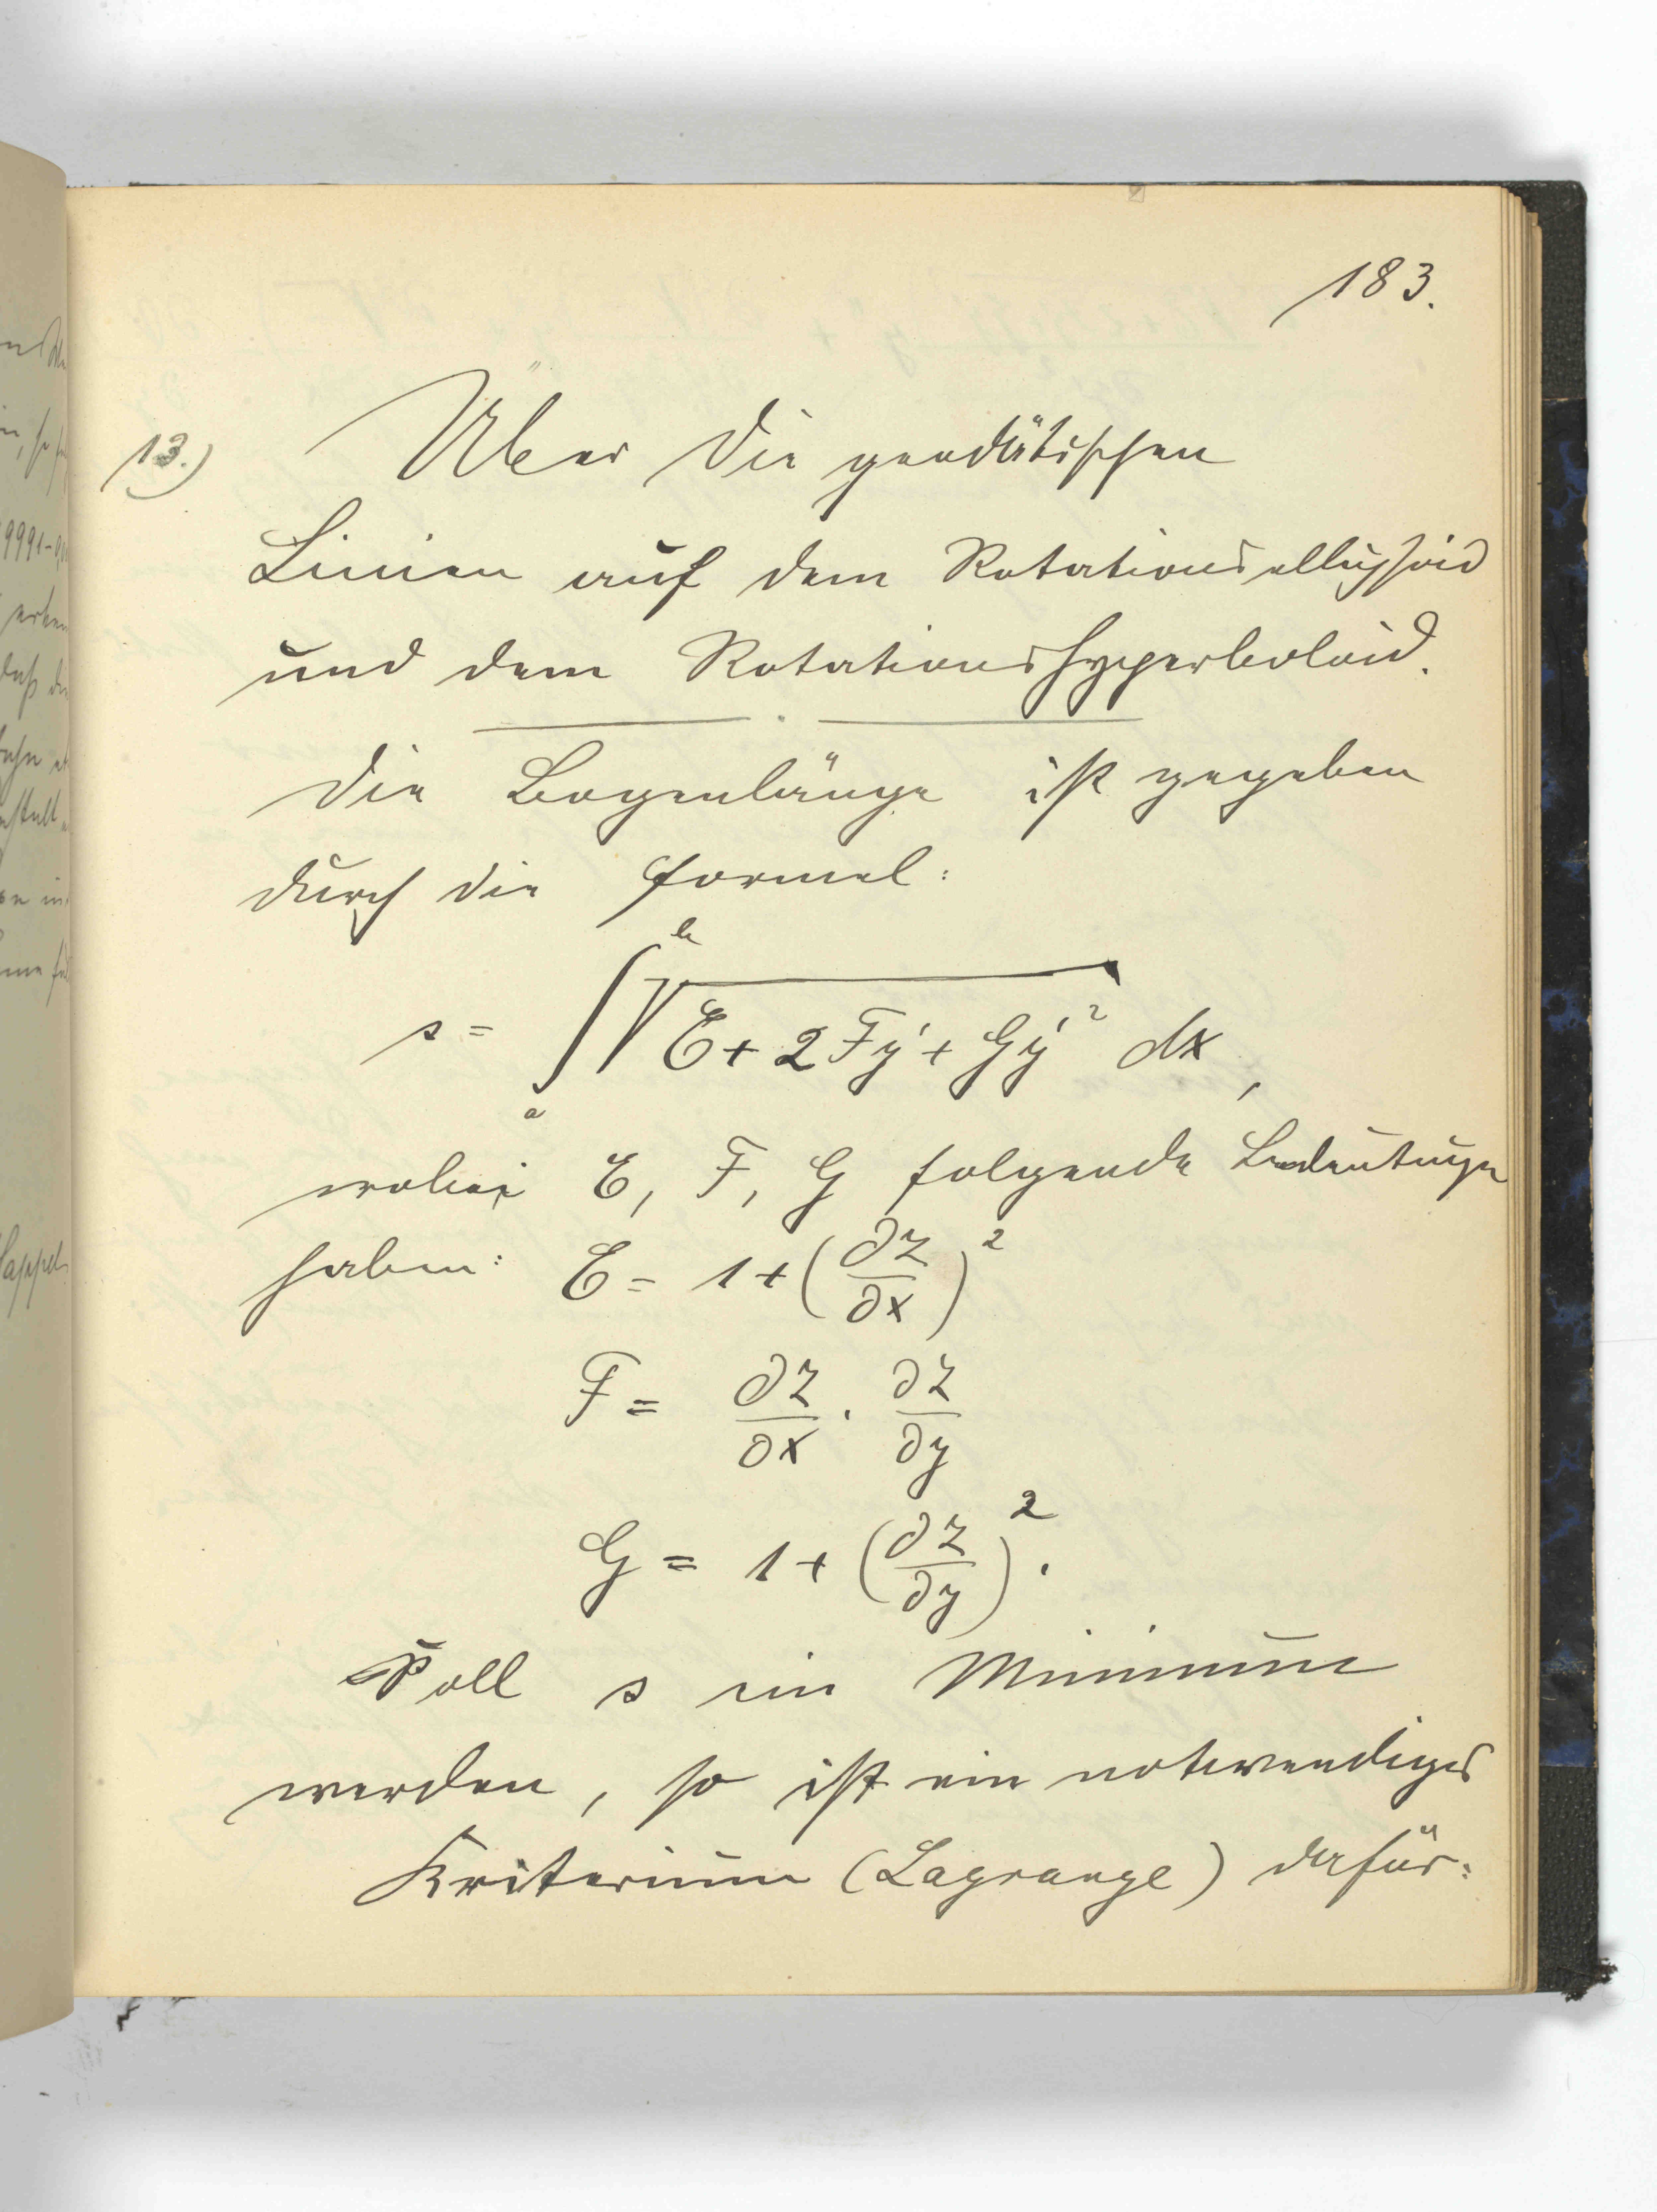 183.
13.) Über die geodätischen
Linien auf dem Rotationsellipsoid
und dem Rotationshyperboloid.
Die Bogenlänge ist gegeben
durch die Formel:
s = ∫_a^b √(E + 2Fy' + Gy'²) dx,
wobei E, F, G folgende Bedeutung
haben: E = 1 + (∂z/∂x)²
F = ∂z/∂x · ∂z/∂y
G = 1 + (∂z/∂y)².
Soll s ein Minimum
werden, so ist ein notwendiges
Kriterium (Lagrange) dafür: